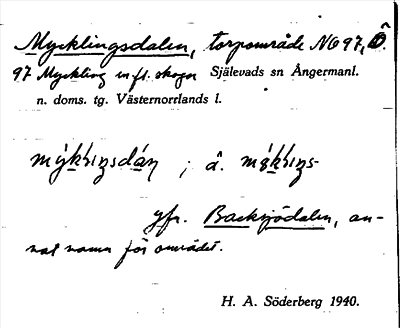 Mycklingsdalen, torpområde NG 97,
97 Myckling m fl. skogen Själevads sn Ångermanl.
n. doms. tg. Västernorrlands l.
; å.
jfr. Backsjödalen, an-
nat namn för området.
H. A. Söderberg 1940.